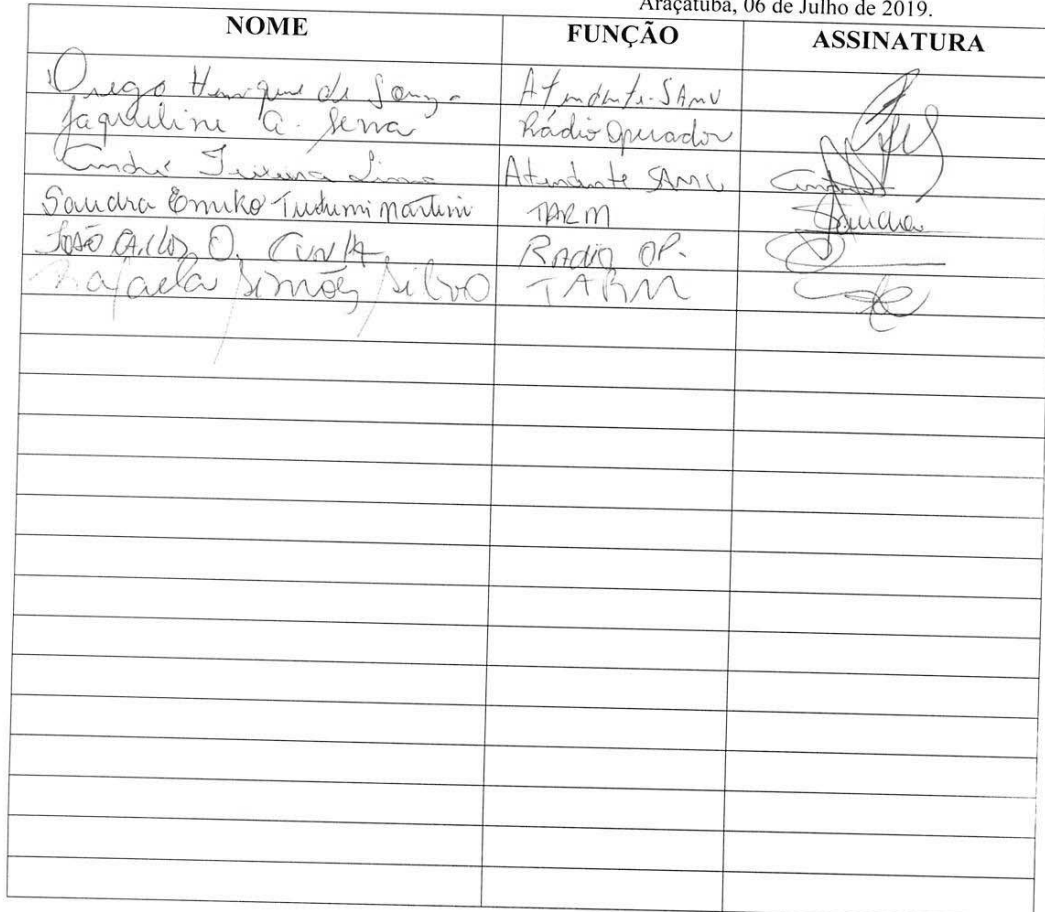 Araçatuba, 06 de Julho de 2019.
NOME FUNÇÃO ASSINATURA
Diego Henrique de Souza Atendente-SAMU
Jaqueline A. Serra Rádio Operador
André Teixeira Lima Atendente SAMU
Sandra Emiko Tudumi Martini TARM Sandra
João Carlos O. Cunha Radio OP.
Rafaela Simões Silva TARM